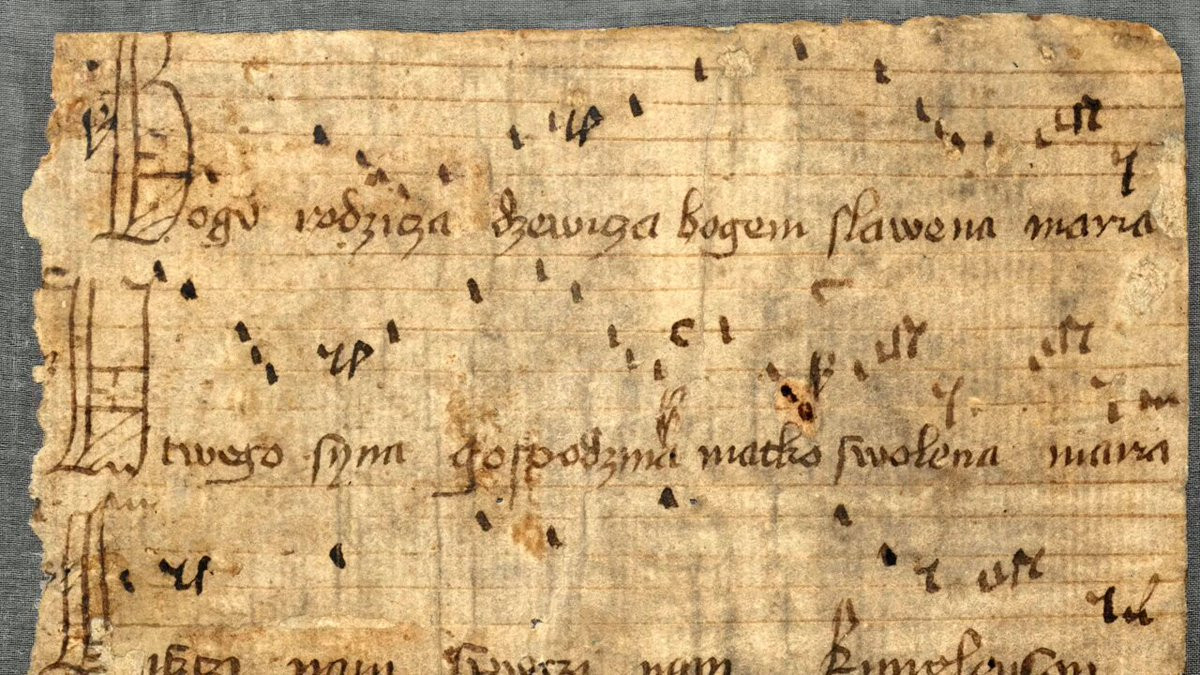 Bogu rodzicza dzewicza bogem slawena maria
U twego syna gospodzina matko swolena maria
nam nam